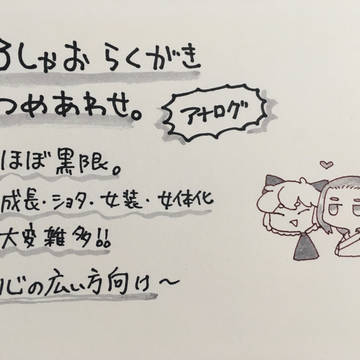 しゃお らくがき
つめあわせ。
アナログ
ほぼ黒限。
成長・ショタ・女装・女体化
大変雑多!!
心の広い方向け〜